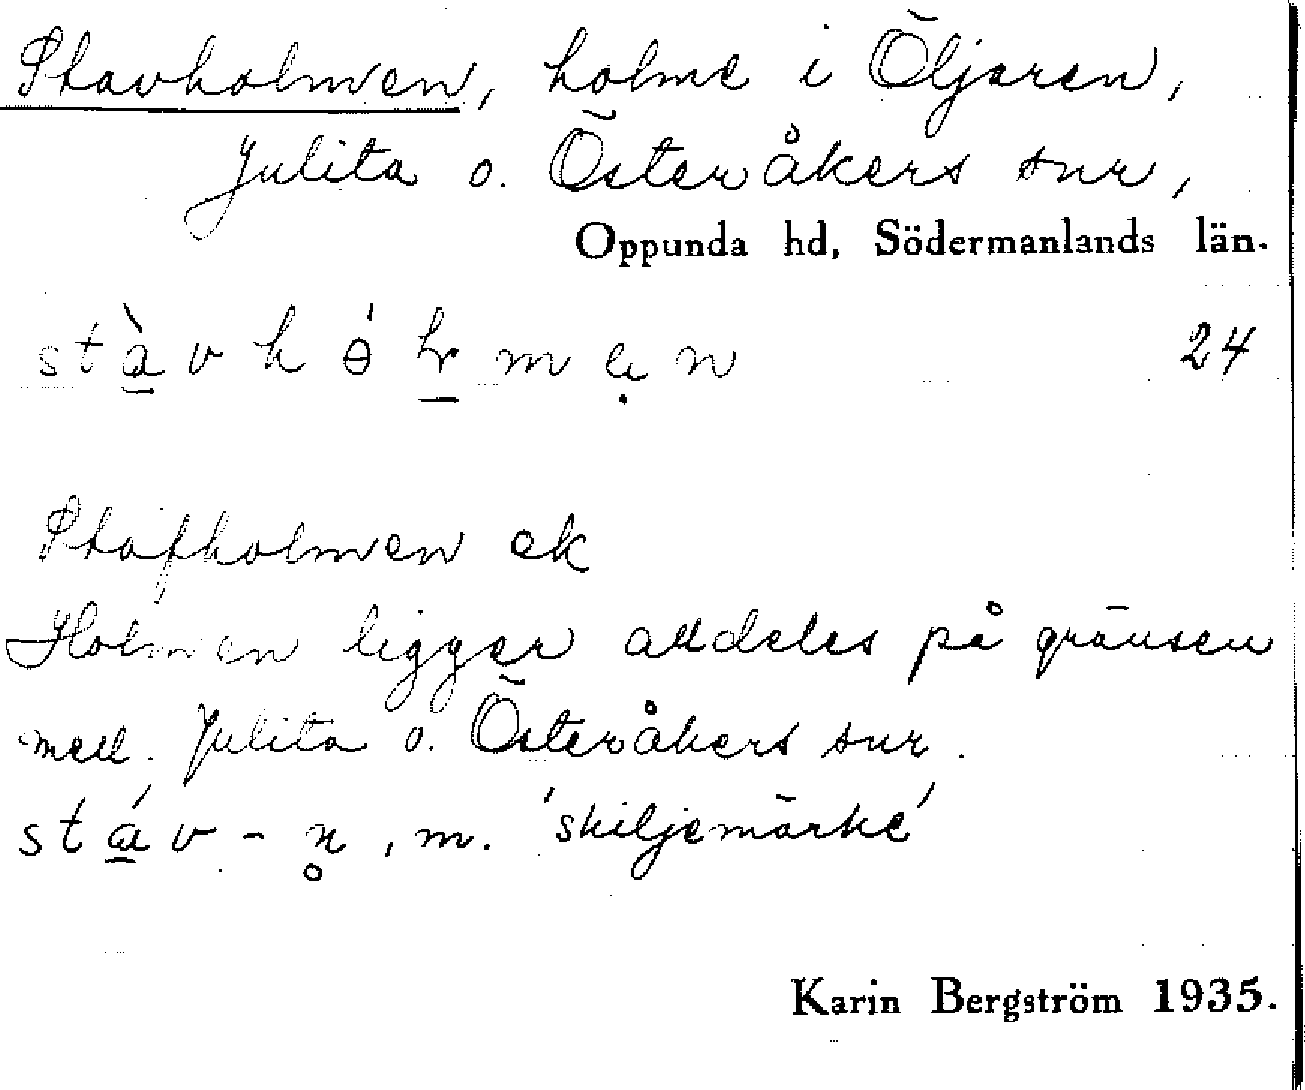 Stavholmen, holme i Öljaren,
Julita o. Österåkers snr,
Oppunda hd, Södermanlands län.
stàvhólmen 24
Stafholmen ek
Holmen ligger alldeles på gränsen
mell. Julita o. Österåkers snr.
stáv-n, m. 'skiljemärke'
Karin Bergström 1935.